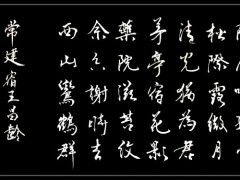 松際露微月
清光猶為君
茅亭宿花影
藥院滋苔紋
余亦謝時去
西山鸞鶴群
常建宿王昌齡